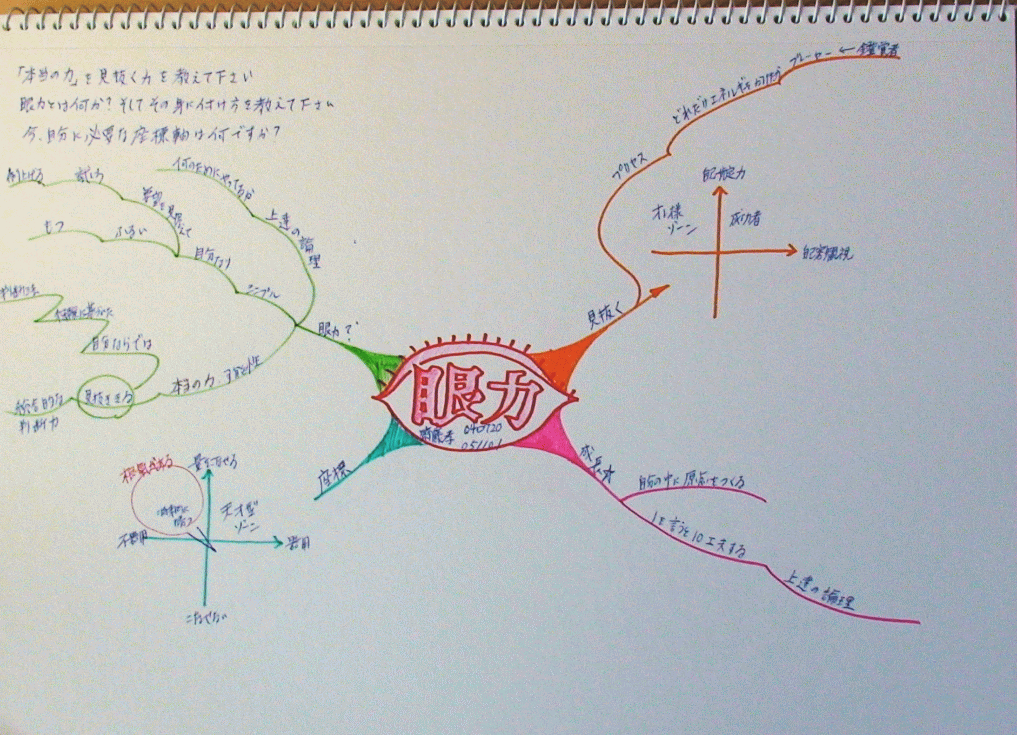 「本当の力」を見抜く力を教えて下さい
眼力とは何か?そしてその身に付け方を教えて下さい
今、自分に必要な座標軸は何ですか?
眼力
齋藤孝
040720
051101
見抜く
プロセス
どれだけエネルギーをかけたか
プレーヤー ← 鑑賞者
自己肯定力
自己客観視
オレ様
ゾーン
成功者
成長力
自分の中に原点をつくる
1を言うを10工夫する
上達の論理
座標
量をこなせる
こなせない
不器用
器用
天才型
ゾーン
根気がある
眼力で
上達の論理
何のためにやってるか
シンプル
自分なり
要望を見据えて
試いろ
ふるい
もつ
本当の力
見抜きる
自分ならでは
総合的な
判断力